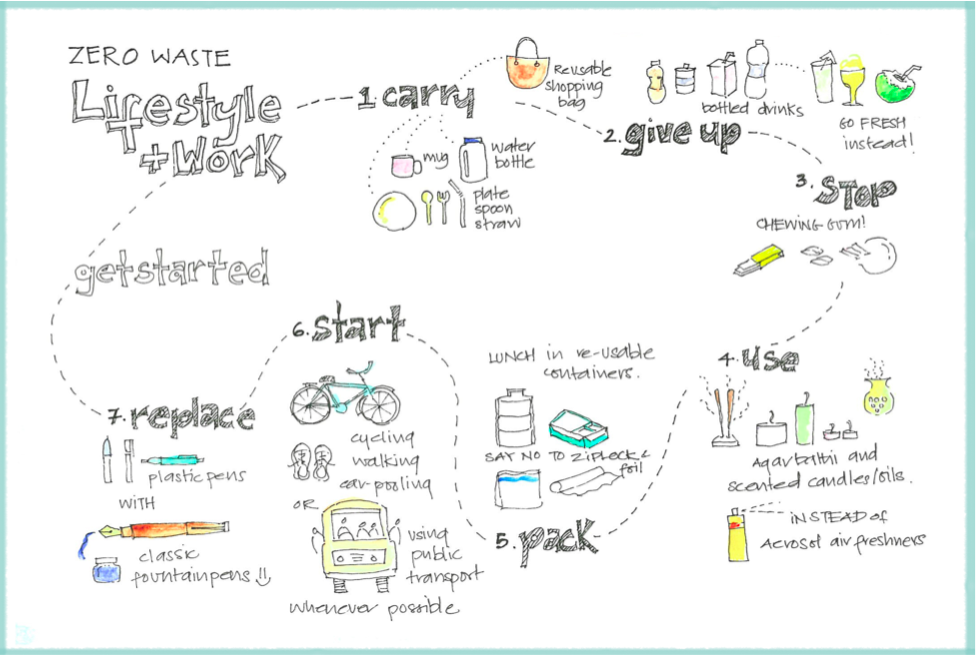 ZERO WASTE
Lifestyle
+ WORK
getstarted
1 carry
Reusable
shopping
bag
mug
water
bottle
plate
spoon
straw
2. give up
bottled drinks
GO FRESH
instead!
3. STOP
CHEWING GUM!
4. USE
Agarbathi and
scented candles/oils.
INSTEAD OF
Aerosol air freshners
5. pack
LUNCH in re-usable
containers.
SAY NO TO ZIPLOCK &
foil
6. start
cycling
walking
car-pooling
OR
using
public
transport
whenever possible
7. replace
plastic pens
WITH
classic
fountain pens !!